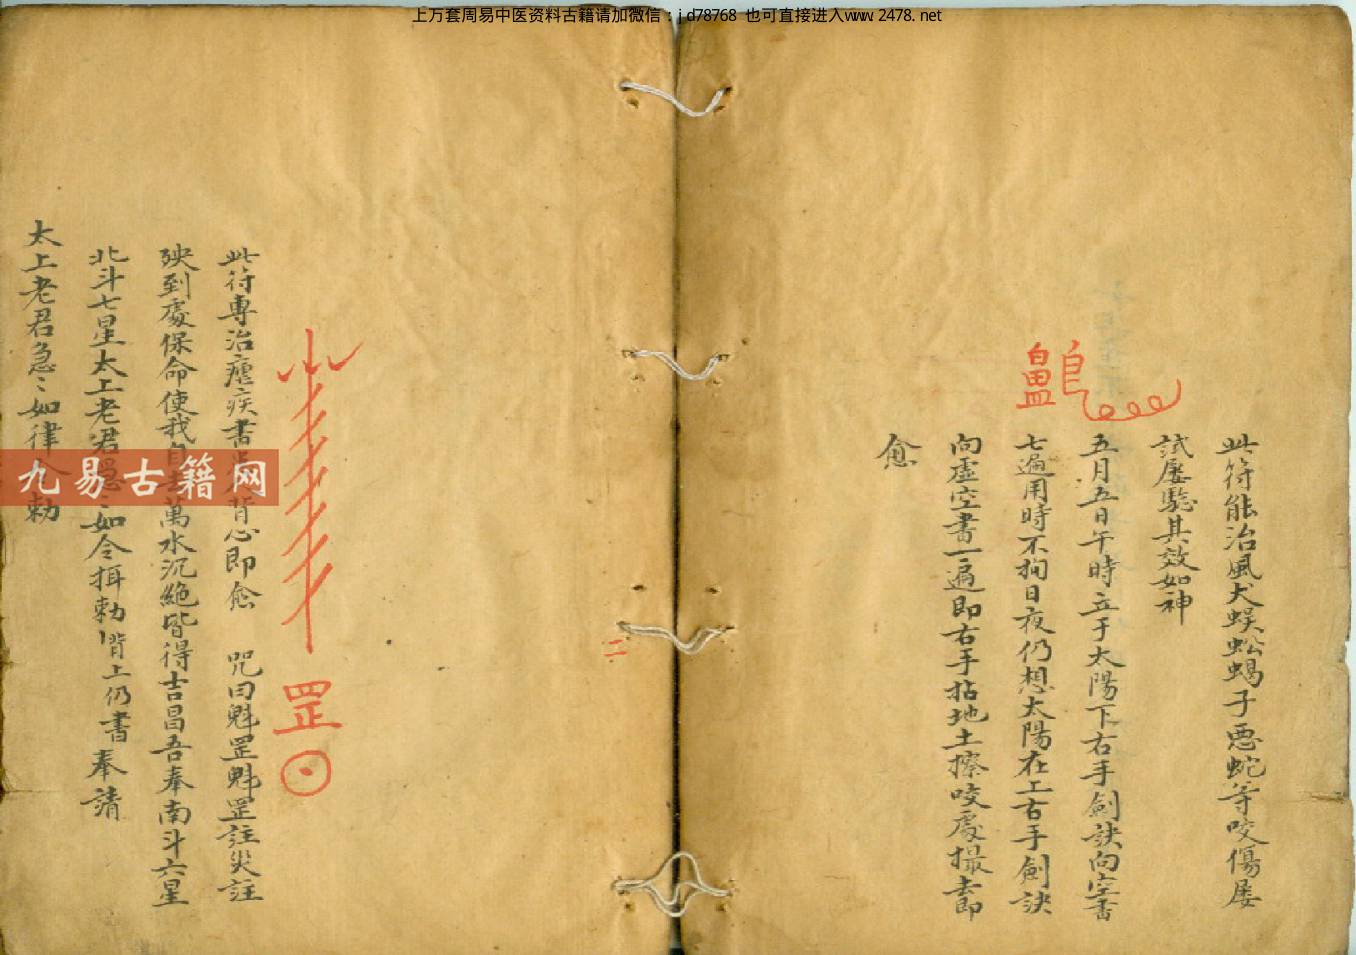 上万套周易中医资料古籍请加微信：jd78768 也可直接进入www.2478.net
此符能治風犬蜈蚣蝎子恶蛇等咬傷屡
試屡驗其效如神
五月五日午時立于太陽下右手劍訣向空書
七遍用時不拘日夜仍想太陽在上右手劍訣
向虚空書一遍即右手拈地土擦咬處撮去即
愈
二
罡
此符專治瘧疾書背心即愈 咒曰魁罡魁罡註災註
殃到處保命使我自萬水沉絶皆得吉昌吾奉南斗六星
北斗七星太上老君急々如令勅背上仍書奉請
太上老君急々如律令勅
九易古籍网